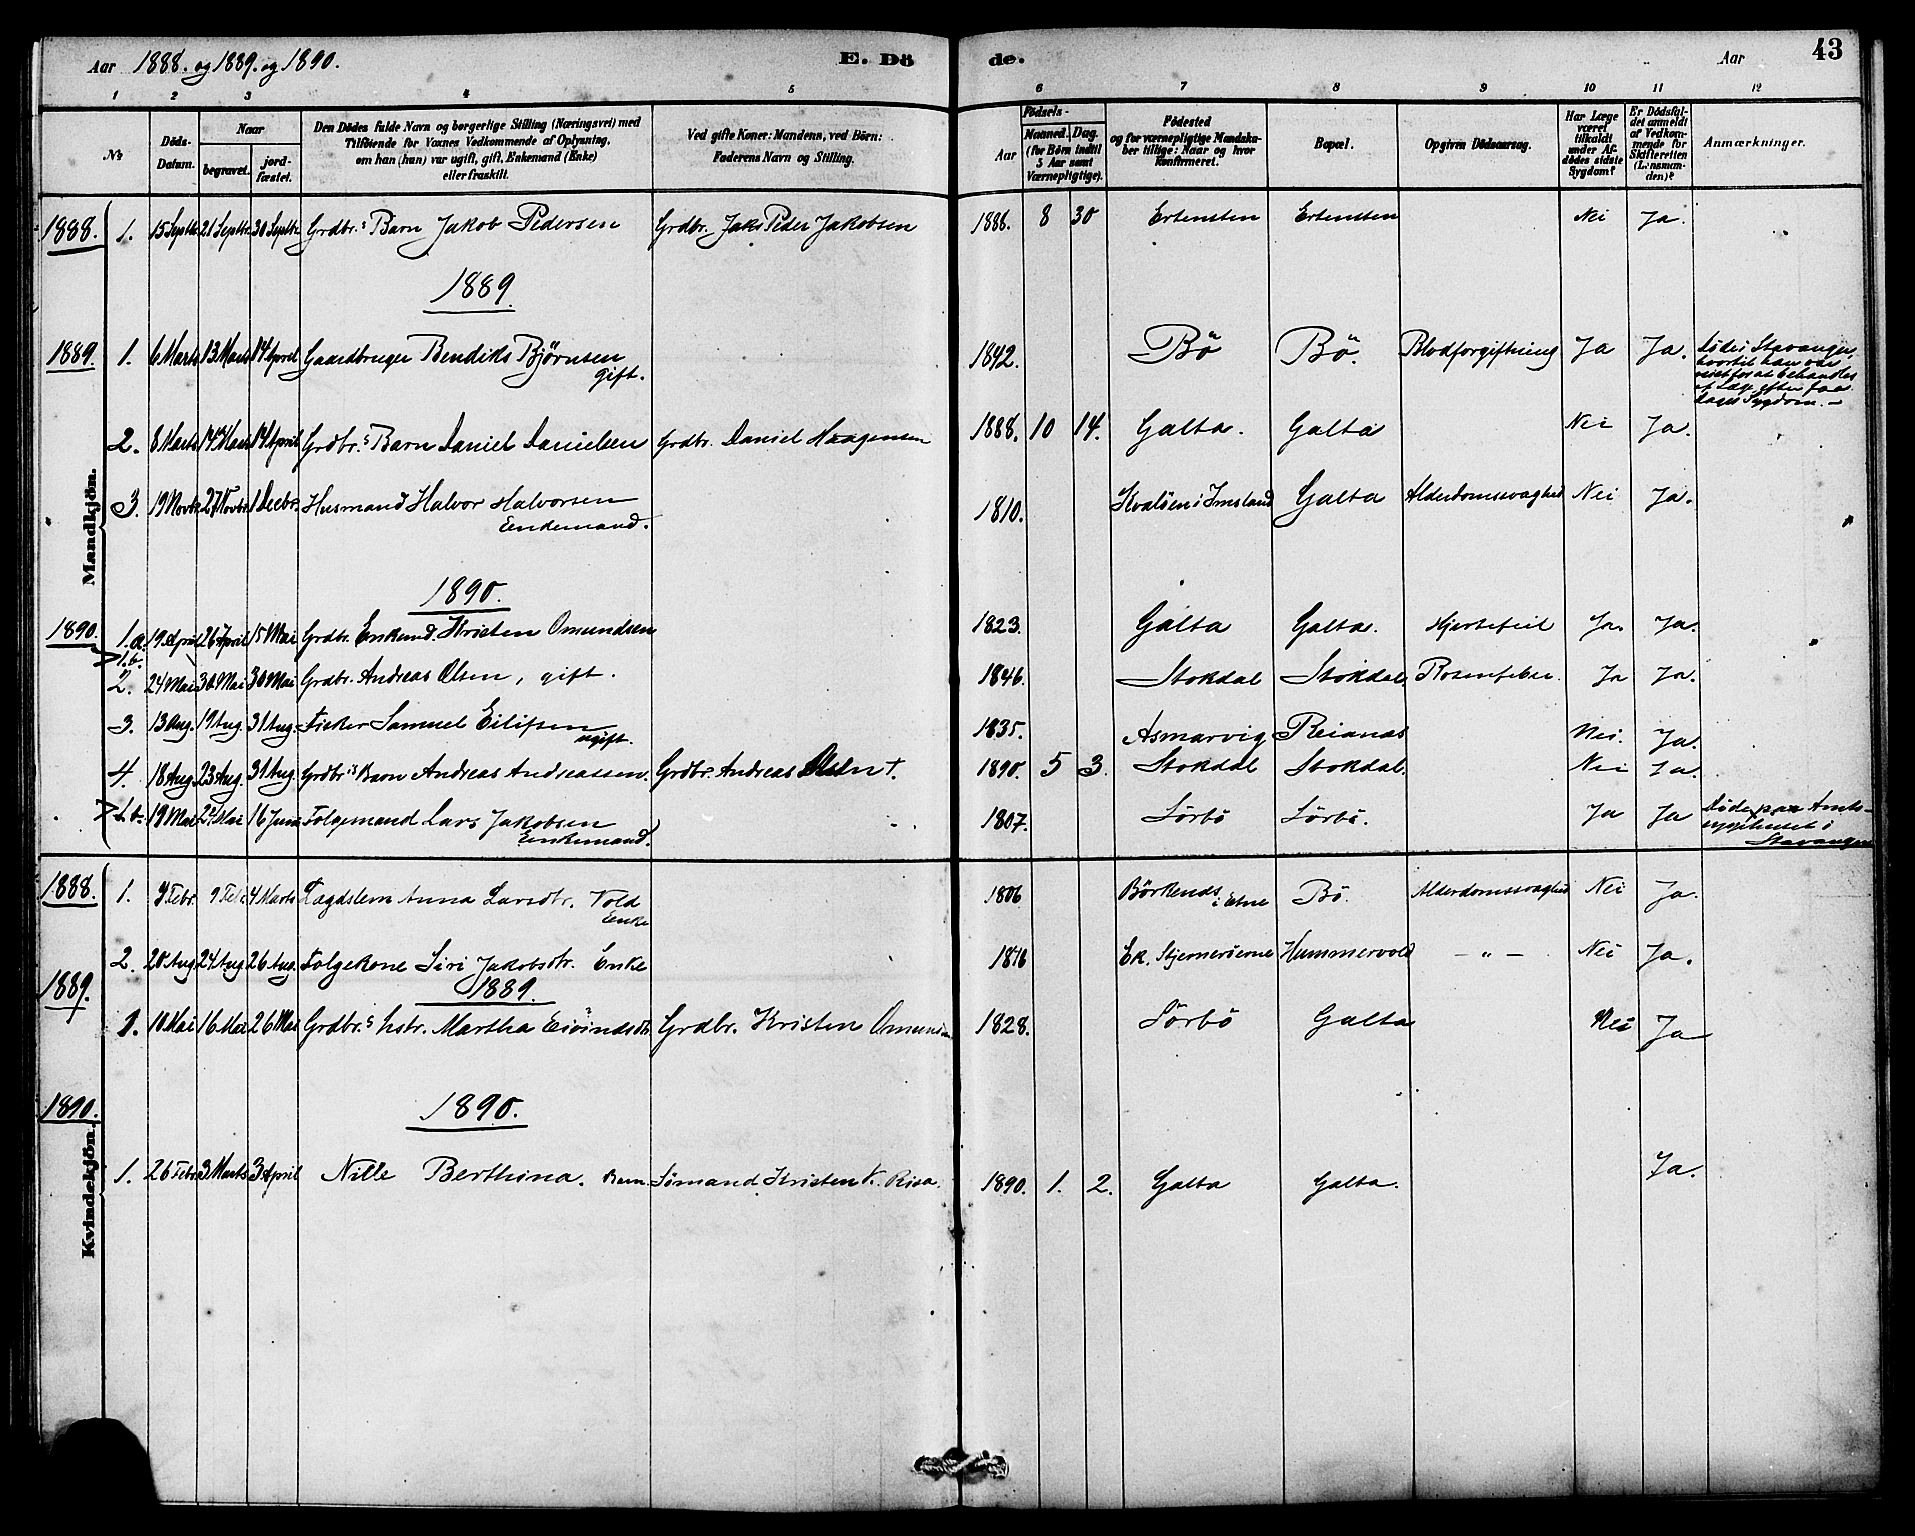 Aar 1888. og 1889. og 1890. E. Dö de. Aar 43
1 2 3 4 5 6 7 8 9 10 11 12
№ Döds-Datum. Naar begravet. jord-fæstet. Den Dödes fulde Navn og borgerlige Stilling (Næringsvei) med Tilföiende for Voxnes Vedkommende af Oplysning, om han (hun) var ugift, gift, Enkemand (Enke) eller fraskilt. Ved gifte Koner: Mandens, ved Börn: Faderens Navn og Stilling. Födsels- Aar Maaned. Dag. (for Börn indtil 5 Aar samt Værnepligtige). Födested og for værnepligtige Mandskaber tillige: Naar og hvor konfirmeret. Bopæl. Opgiven Dödsaarsag. Har Læge været tilkaldt under Afdödes sidste Sygdom? Er Dödsfaldet anmeldt af Vedkommende for Skifteretten (Lensmanden)? Anmærkninger.
Mandkjön.
1888. 1. 15 Septbr. 21 Septbr. 30 Septbr. Grdbr.s Barn Jakob Pedersen Grdbr. Jaks Peder Jakobsen 1888. 8 30 Ertensten Ertensten Nei Ja.
1889
1889. 1. 6 Marts 13 Marts 14 April Gaardbruger Bendiks Bjørnsen gift. 1842. Bö Bö. Blodforgiftning Ja Ja. Döde i Stavanger, hvortil han var reist for at behandles af Læge efter faa Dages Sygdom. –
2. 8 Marts 14 Marts 14 April Grdbr.s Barn Daniel Danielsen Grdbr. Daniel Haagensen 1888. 10 14. Galta. Galta Nei Ja.
3. 19 Novbr 27 Novbr. 1 Decbr. Husmand Halvor Halvorsen Enkemand. 1810. Kvalöen i Imsland Galta Alderdomssvaghed Nei Ja.
1890.
1890. 1.a. 19 April 26 April 15 Mai Grdbr. Enkemd. Kristen Omundsen 1823. Galta Galta. Hjertefeil Ja. Ja.
> 1.b.
2. 24 Mai 30 Mai 30 Mai Grdbr. Andreas Olsen, gift. 1846. Stokdal Stokdal. Rosenfeber. Ja Ja.
3. 13 Aug. 19 Aug. 31 Aug. Fisker Samuel Eilifsen ugift. 1835. Asmarvig Reianas Nei. Ja.
4. 18 Aug. 23 Aug. 31 Aug. Grdbr.s Barn Andreas Andreassen. Grdbr. Andreas Olsen †. 1890. 5 3. Stokdal Stokdal. Nei Ja.
> 1.b. 19 Mai 24 Mai 16 Juni Folgemand Lars Jakobsen Enkemand. 1807. Sörbö Sörbö. Ja Ja Döde paa Amtssygehuset i Stavanger
Kvindekjön.
1888. 1. Febr. 9 Febr. 4 Marts Lægdslem Anna Larsdtr. Vold Enke 1806 Börkends i Etne Bö. Alderdomssvaghed Nei Ja.
2. 20 Aug 24 Aug 26 Aug. Folgekone Siri Jakobsdtr. Enke Ek. Stjerneröerne Hummervold – " – Nei Ja.
1889. 1889.
1. 10 Mai 16 Mai 26 Mai Grdbr.s hstr. Martha Eivindsdtr. Grdbr. Kristen Omundsen 1828. Sörbö Galta Nei Ja
1890. 1890.
1. 26 Febr 3 Marts 3 April Nille Berthina. Barn Sömand Kristen K. Risa. 1890. 1. 2. Galta Galta. Ja.